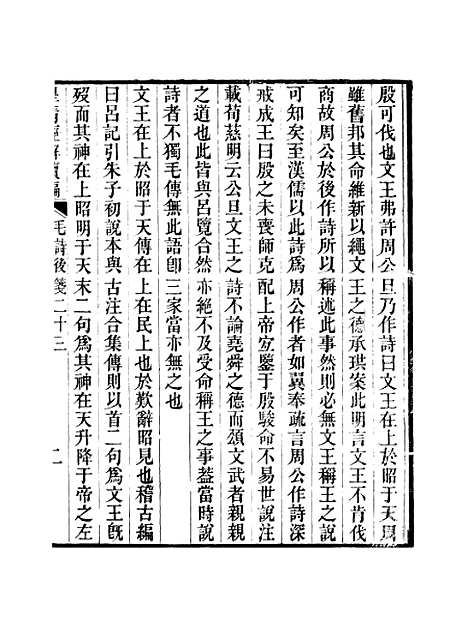 殷可伐也文王弗許周公旦乃作詩曰文王在上於昭于天周
雖舊邦其命維新以繩文王之德承珙案此明言文王不肯伐
商故周公於後作詩所以稱述此事然則必無文王稱王之說
可知矣至漢儒以此詩為周公作者如翼奉疏言周公作詩深
戒成王曰殷之未喪師克配上帝宜鑒于殷駿命不易世說注
載荀慈明云公旦文王之詩不論堯舜之德而頌文武者親親
之道也此皆與呂覽合然亦絕不及受命稱王之事葢當時說
詩者不獨毛傳無此語卽三家當亦無之也
文王在上於昭于天傳在上在民上也於歎辭昭見也稽古編
曰呂記引朱子初說本與古注合集傳則以首二句為文王旣
歿而其神在上昭明于天末二句為其神在天升降于帝之左
皇清經解續編
毛詩後箋二十三
二